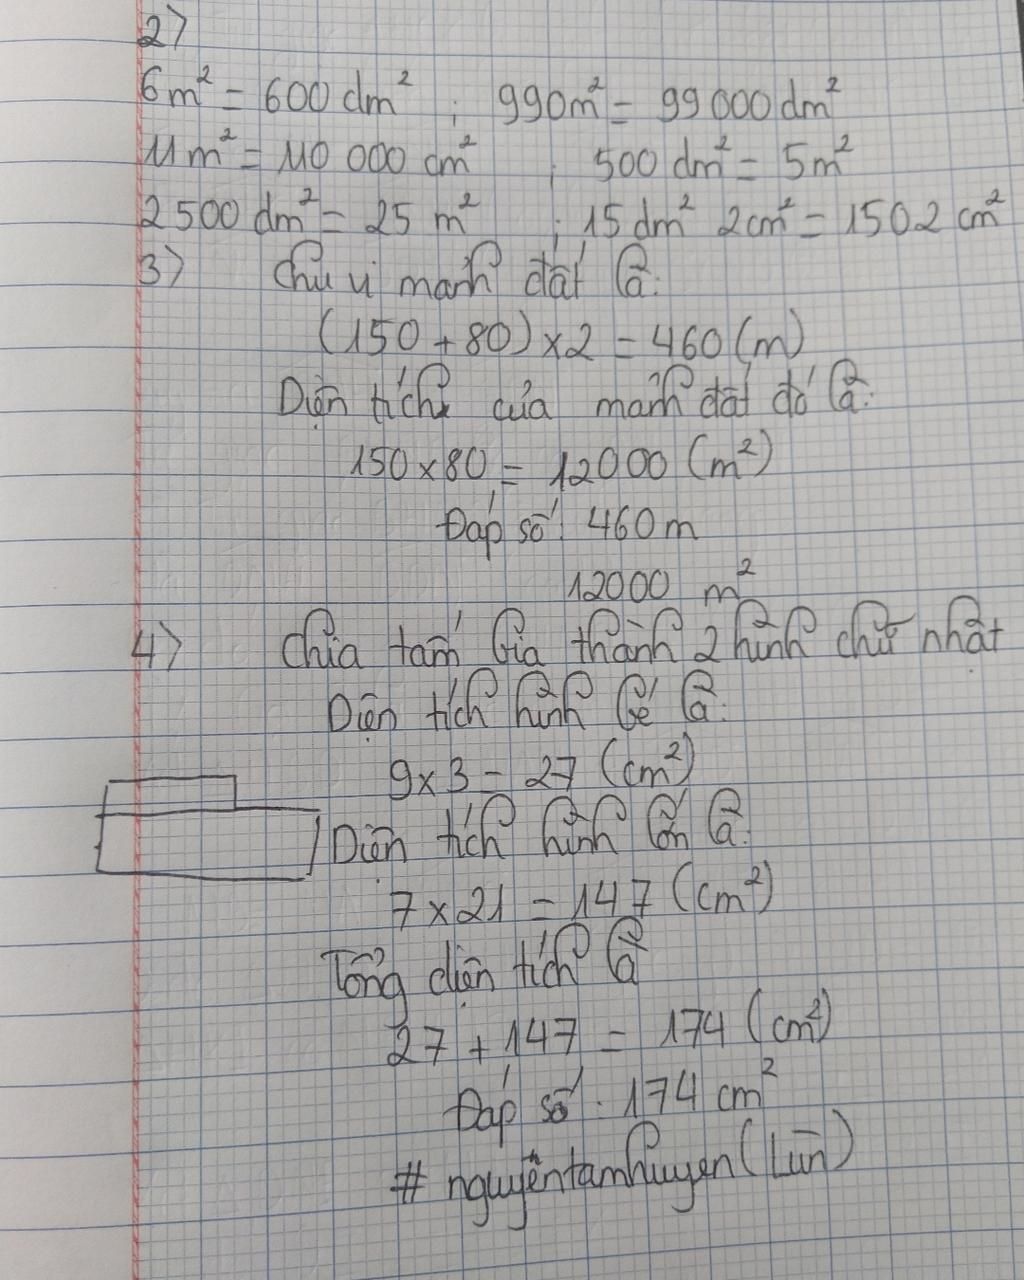 2)
6m² = 600 dm² ; 990m² = 99 000 dm²
11m² = 110 000 cm² ; 500 dm² = 5m²
2 500 dm² = 25 m² ; 15 dm² 2cm² = 1502 cm²
3) Chu vi mảnh đất là:
(150 + 80) x 2 = 460 (m)
Diện tích của mảnh đất đó là:
150 x 80 = 12000 (m²)
Đáp số: 460 m
12000 m²
4) Chia tấm bìa thành 2 hình chữ nhật
Diện tích hình bé là:
9 x 3 = 27 (cm²)
Diện tích hình lớn là:
7 x 21 = 147 (cm²)
Tổng diện tích là
27 + 147 = 174 (cm²)
Đáp số: 174 cm²
# nguyễntamhuyen (Lùn)